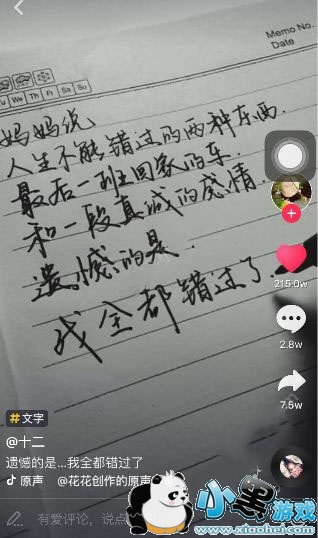 Memo No.
Date
We Th Fr Sa Su
妈妈说
人生不能错过的两种东西.
最后一班回家的车.
和一段真诚的感情.
遗憾的是.
我全都错过了
215.0w
2.8w
7.5w
#文字
@十二
遗憾的是...我全都错过了
原声 @花花创作的原声
有爱评论，说点
小黑游戏
www.xiaohei.com